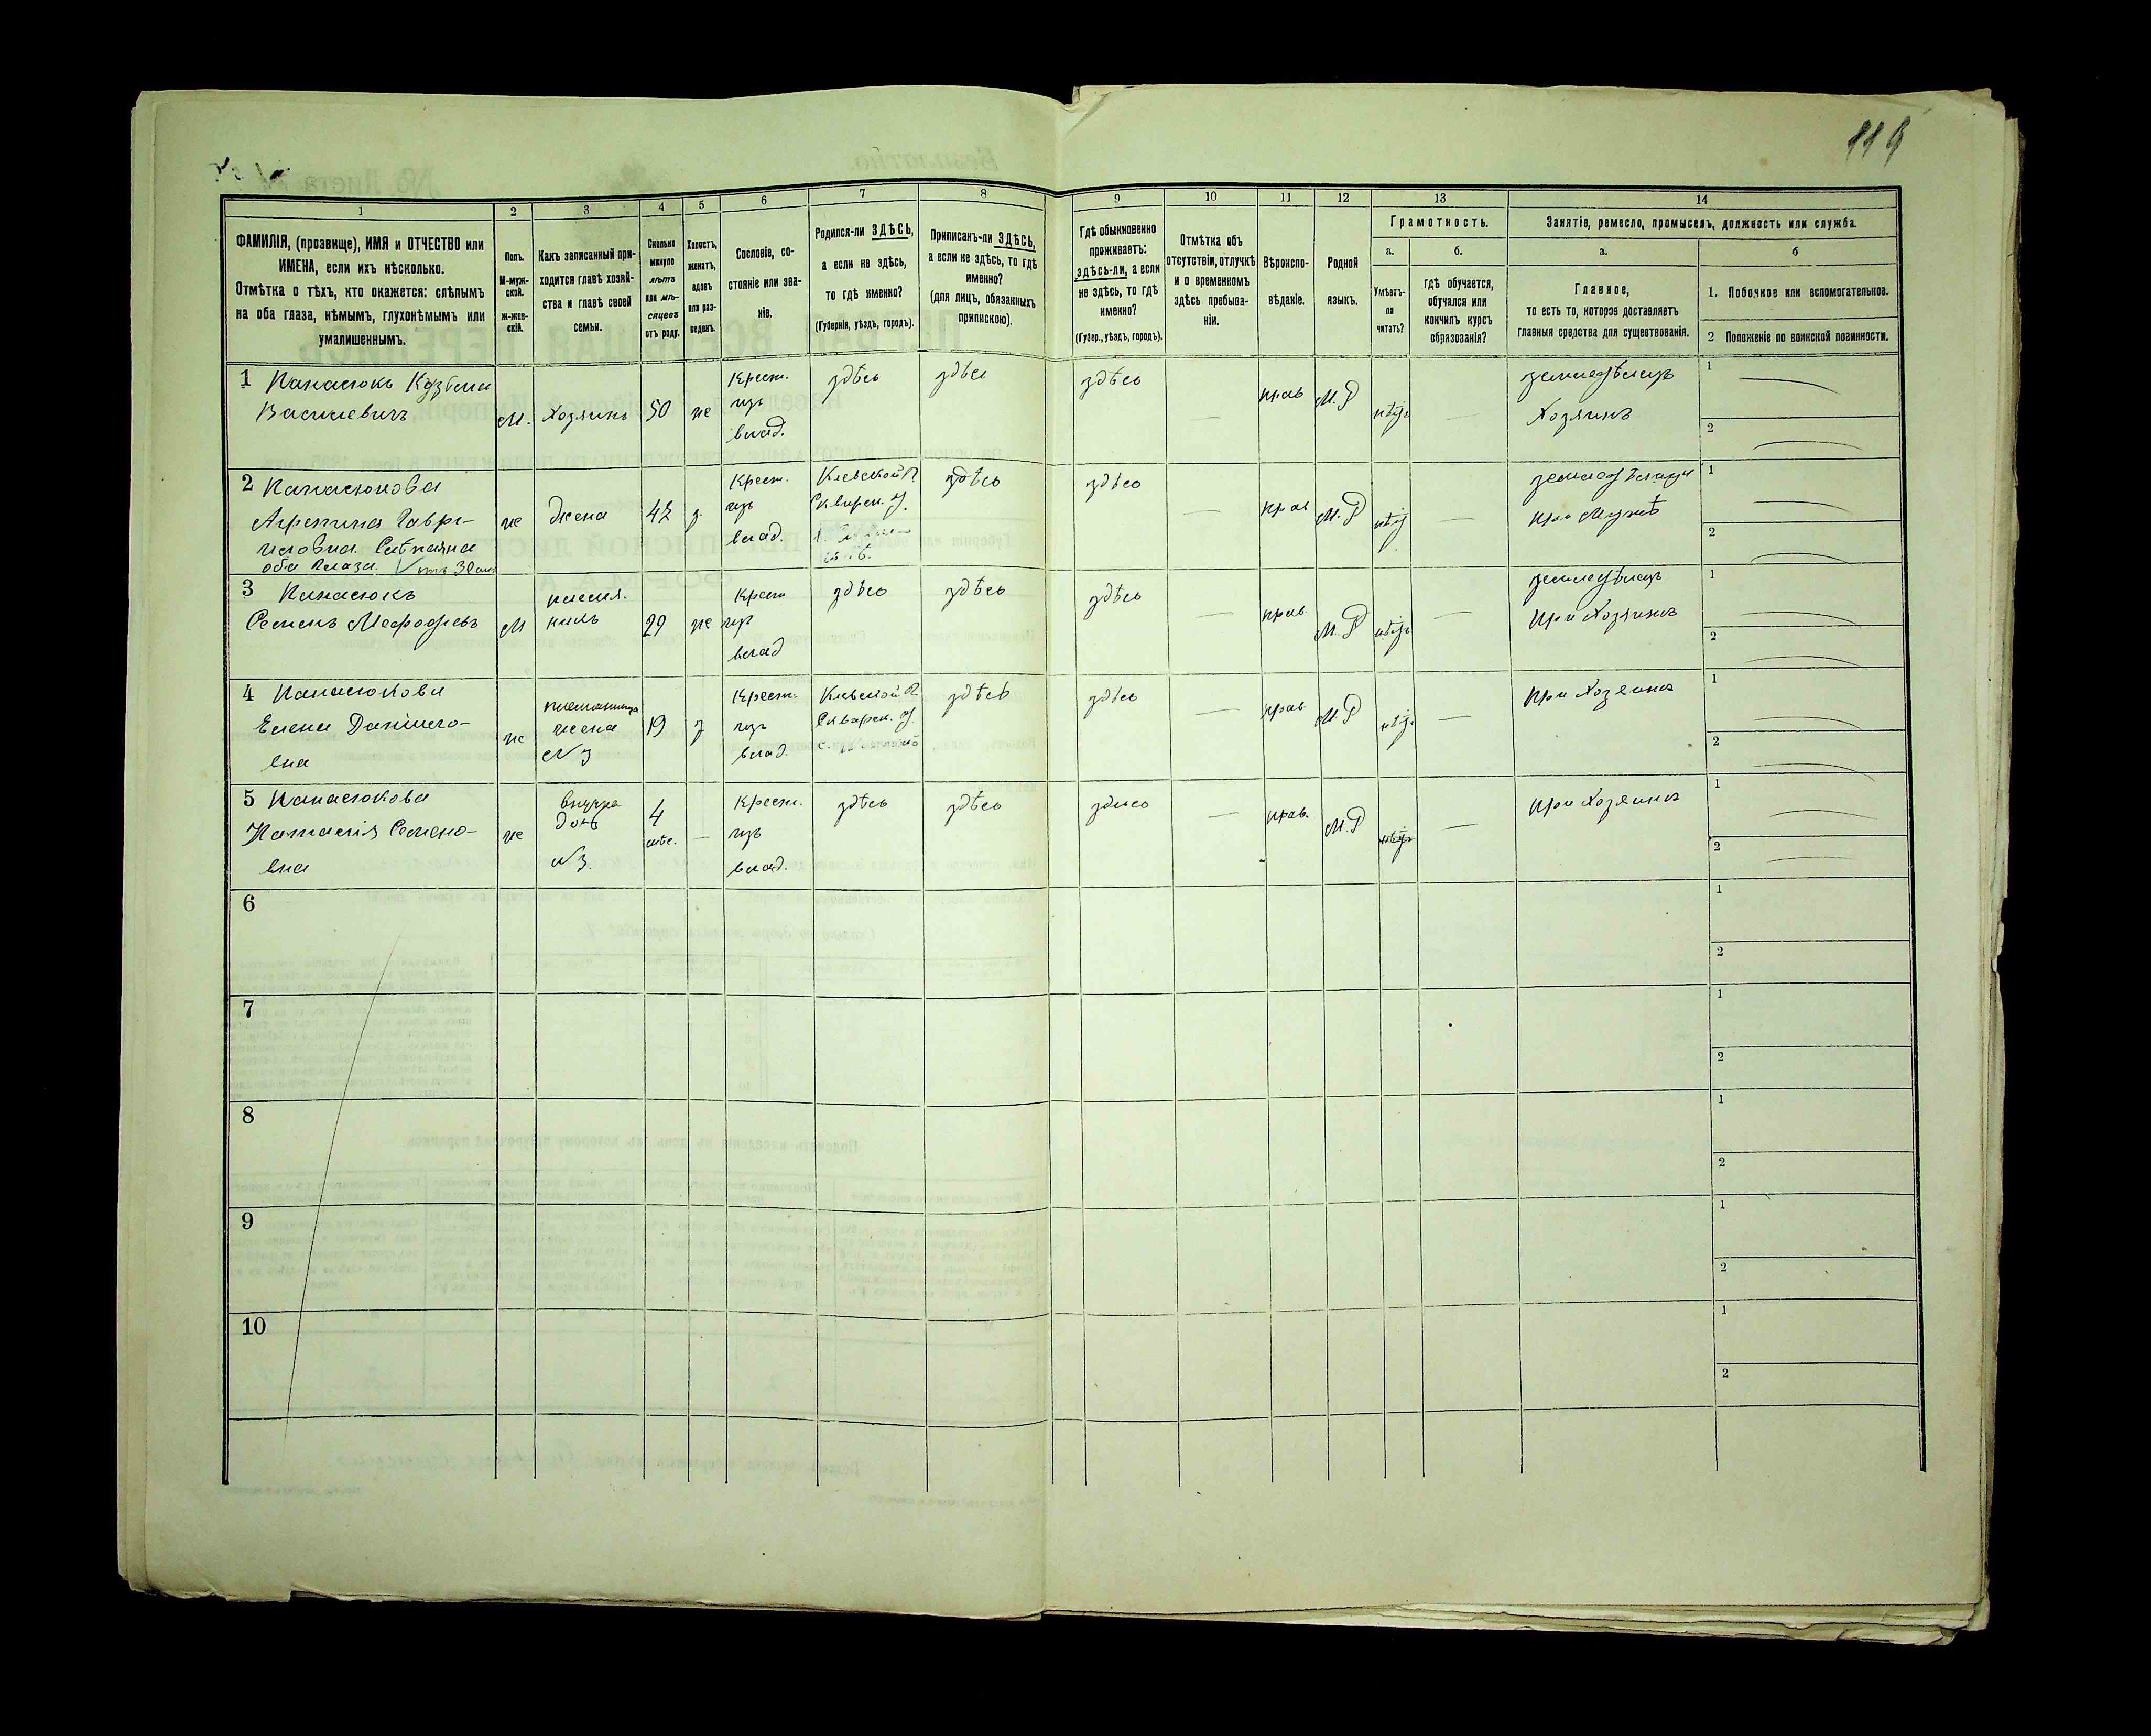 119
1
2
3
4
5
6
7
8
9
10
11
12
13
14
ФАМИЛІЯ, (прозвище), ИМЯ и ОТЧЕСТВО или
ИМЕНА, если ихъ нѣсколько.
Отмѣтка о тѣхъ, кто окажется: слѣпымъ
на оба глаза, нѣмымъ, глухонѣмымъ или
умалишеннымъ.
Полъ.
М-муж-
ской.
Ж-жен-
скій.
Какъ записанный при-
ходится главѣ хозяй-
ства и главѣ своей
семьи.
Сколько
минуло
лѣтъ
или мѣ-
сяцевъ
отъ роду.
Холостъ,
женатъ,
вдовъ
или раз-
веденъ.
Сословіе, со-
стояніе или зва-
ніе.
Родился-ли ЗДѢСЬ,
а если не здѣсь,
то гдѣ именно?
(Губернія, уѣздъ, городъ).
Приписанъ-ли ЗДѢСЬ,
а если не здѣсь, то гдѣ
именно?
(для лицъ, обязанныхъ
припискою).
Гдѣ обыкновенно
проживаетъ:
здѣсь-ли, а если
не здѣсь, то гдѣ
именно?
(Губер., уѣздъ, городъ).
Отмѣтка объ
отсутствіи, отлучкѣ
и о временномъ
здѣсь пребыва-
ніи.
Вѣроиспо-
вѣданіе.
Родной
языкъ.
Грамотность.
а.
Умѣетъ-
ли
читать?
б.
гдѣ обучается,
обучался или
кончилъ курсъ
образованія?
Занятіе, ремесло, промыселъ, должность или служба.
а.
Главное,
то есть то, которое доставляетъ
главныя средства для существованія.
б
1. Побочное или вспомогательное.
2 Положеніе по воинской повинности.
1 Панасюкъ Козьма
Васильевичъ
М.
Хозяинъ
50
же
Крест.
изъ
влад.
здѣсь
здѣсь
здѣсь
—
прав
М.Р
нѣтъ
—
земледѣлецъ
Хозяинъ
1
2
2 Панасюкова
Агрепина Гаври-
иловна. Слѣпая на
оба глаза.
же
Жена
з.
Крест.
изъ
влад.
Кіевской г
Сквирск. у.
здѣсь
здѣсь
—
прав
М.Р
нѣтъ
—
при Мужѣ
1
2
3 Панасюкъ
Семенъ Мефодіевъ
М
племя.
никъ
29
же
Крест
изъ
влад
здѣсь
здѣсь
здѣсь
—
прав.
М.Р
нѣтъ
—
земледѣлецъ
при Хозяинѣ
1
2
4 Панасюкова
Елена Даніило-
вна
же
жена
№ 3
19
з
Крест.
изъ
влад.
Кіевской г
Сквирск. у.
здѣсь
здѣсь
—
прав
М.Р
нѣтъ
—
при Хозяинѣ
1
2
5 Панасюкова
Наталія Семено-
вна
же
внучка
дочь
№ 3.
4
мѣс.
—
Крест.
изъ
влад.
здѣсь
здѣсь
здѣсь
—
прав.
М.Р
нѣтъ
—
при Хозяинѣ
1
2
6
1
2
7
1
2
8
1
2
9
1
2
10
1
2